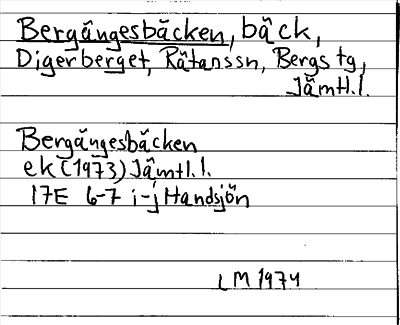 Bergängesbäcken, bäck,
Digerberget, Rätanssn, Bergs tg,
Jämtl.l.
Bergängesbäcken
ek (1973) Jämtl.l.
17E 6-7 i-j Handsjön
LM 1974